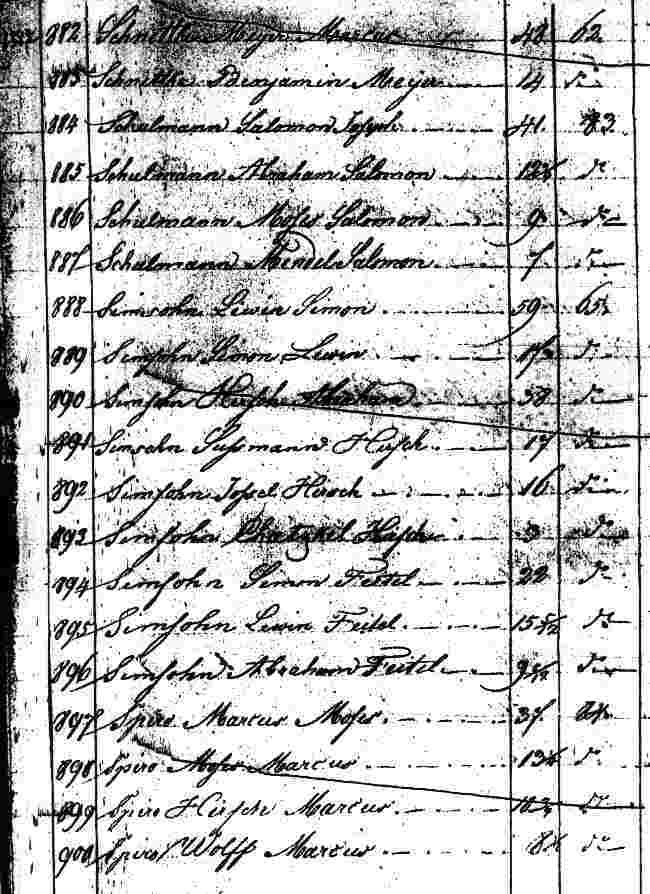 882 Schnittke Meyer Marcus 42 62
883 Schnittke Benjamin Meyer 14 do
884 Schulmann Salomon Joseph 41 83
885 Schulmann Abraham Salomon do
886 Schulmann Moses Salomon 9 do
887 Schulmann Mendel Salomon 7 do
888 Simsohn Lewin Simon 59 65
889 Simsohn Simon Lewin do
890 Simsohn Hirsch Abraham 38 do
891 Simsohn Sussmann Hirsch 17 do
892 Simsohn Jossel Hirsch 16 do
893 Simsohn Hirsch 3 do
894 Simsohn Simon Feitel 22 do
895 Simsohn Lewin Feitel 15 do
896 Simsohn Abraham Feitel 9 do
897 Spiro Marcus Moses 37
898 Spiro Moses Marcus 13 do
899 Spiro Hirsch Marcus do
900 Spiro Wolff Marcus do